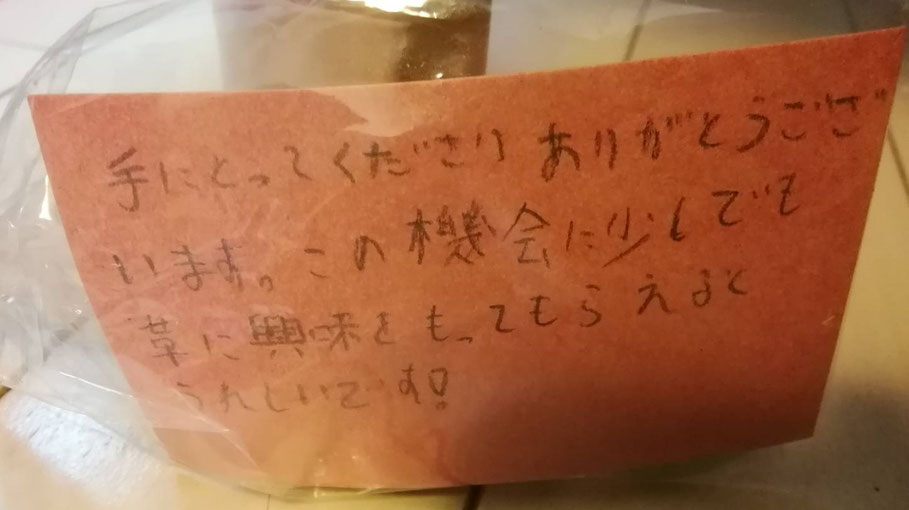 手にとってくださり ありがとうござ
います。この機会に少しでも
革に興味をもってもらえると
うれしいです!